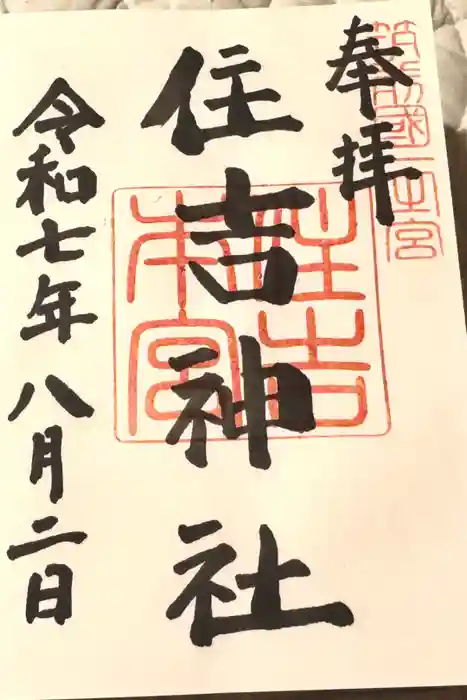 筑前國一之宮
奉拝
住吉神社
住吉
本宮
令和七年八月二日